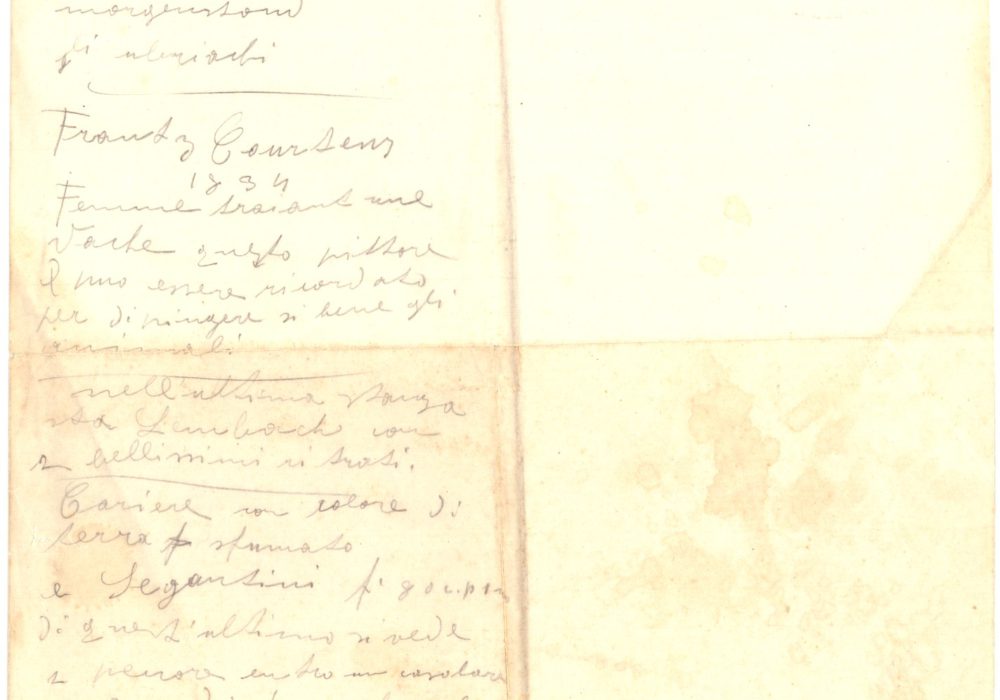 gli ubriachi
Frantz Courtens
1894
Femme traiant une
Vache questo pittore
può essere ricordato
per dipingere si bene gli
animali
nell'ultima stanza
sta Lembach con
2 bellissimi ritrati.
Cariere con colore di
terra sfumato
e Segantini
di quest'ultimo si vede
entro un casolare